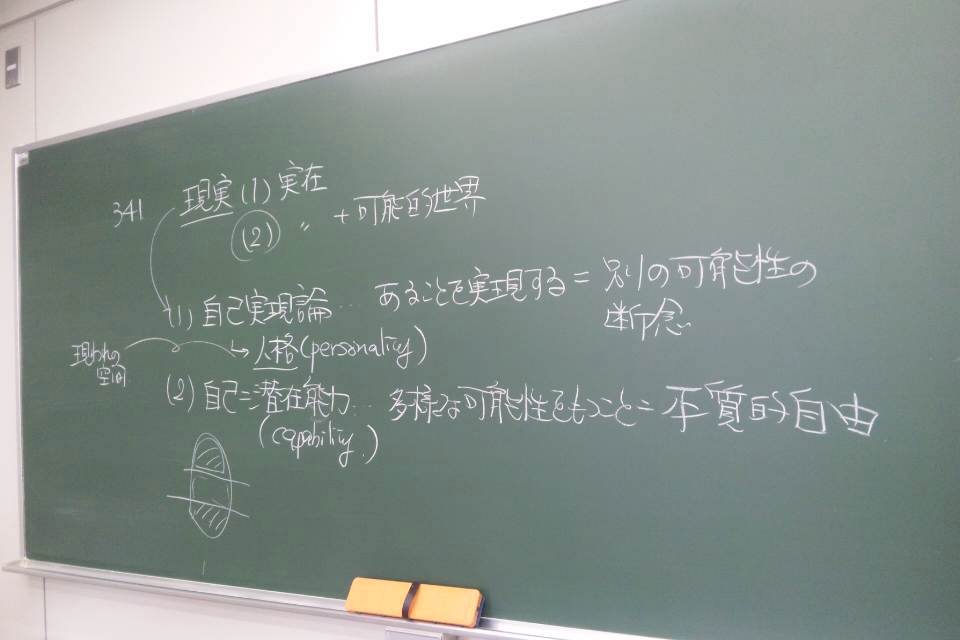 341 現実 (1) 実在
(2) 〃 + 可能的世界
(1) 自己実現論… あることを実現する = 別の可能性の
断念
現われの
空間
→ 人格 (personality)
(2) 自己=潜在能力… 多様な可能性をもつこと = 実質的自由
(capability.)